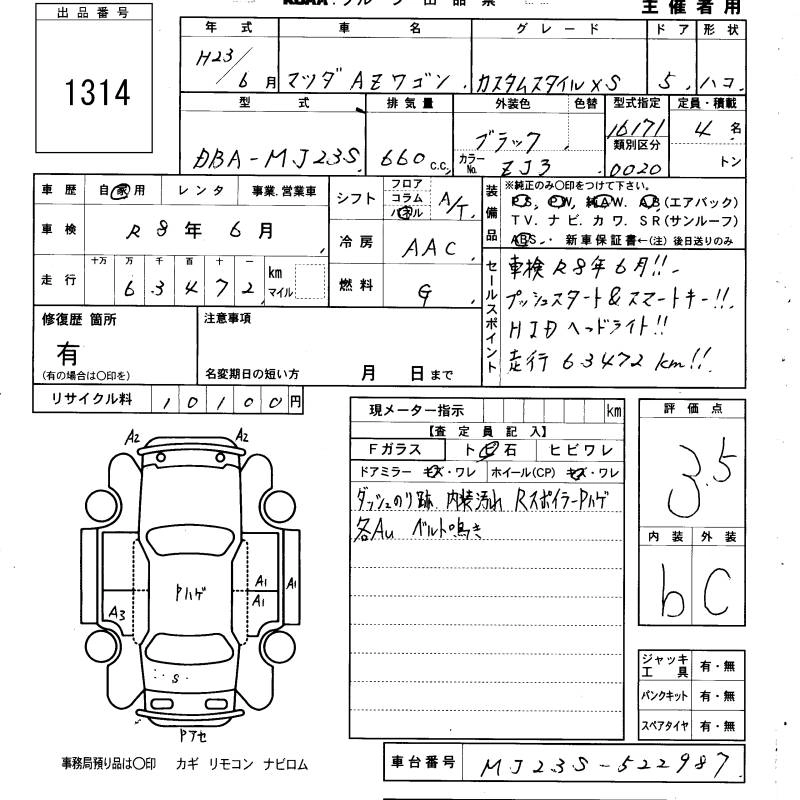 出品番号
1314
主催者用
年式 車名 グレード ドア 形状
H23/6月 マツダ AZワゴン カスタムスタイルXS 5 ハコ
型式 排気量 外装色 色替 型式指定 定員・積載
DBA-MJ23S 660c.c. ブラック 16171 4名
カラーNo. ZJ3 類別区分 0020 トン
車歴 自家用 レンタ 事業.営業車
車検 R8年6月
走行 十万 万 千 百 十 一 km マイル
6 3 4 7 2
シフト フロア コラム パネル A/T
冷房 AAC
燃料 G
装備品 ※純正のみ〇印をつけて下さい。
PS, PW, 純AW. AB(エアバック)
TV. ナビ. カワ. SR(サンルーフ)
ABS. 新車保証書←(注)後日送りのみ
セールスポイント
車検R8年6月!!
プッシュスタート&スマートキー!!
HIDヘッドライト!!
走行63472km!!
修復歴 箇所
有
(有の場合は〇印を)
注意事項
名変期日の短い方 月 日まで
リサイクル料 10100円
現メーター指示 km
【査定員記入】
Fガラス ト ビ 石 ヒビワレ
ドアミラー キズ・ワレ ホイール(CP) キズ・ワレ
ダッシュのり跡 内装汚れ RスポイラーPハゲ
各AU ベルト鳴き
評価点
3.5
内装 外装
b C
ジャッキ工具 有・無
パンクキット 有・無
スペアタイヤ 有・無
A2 A2
A1 A1
A1
A3
Pハゲ
S
Pアセ
事務局預り品は〇印 カギ リモコン ナビロム
車台番号 MJ23S-522987